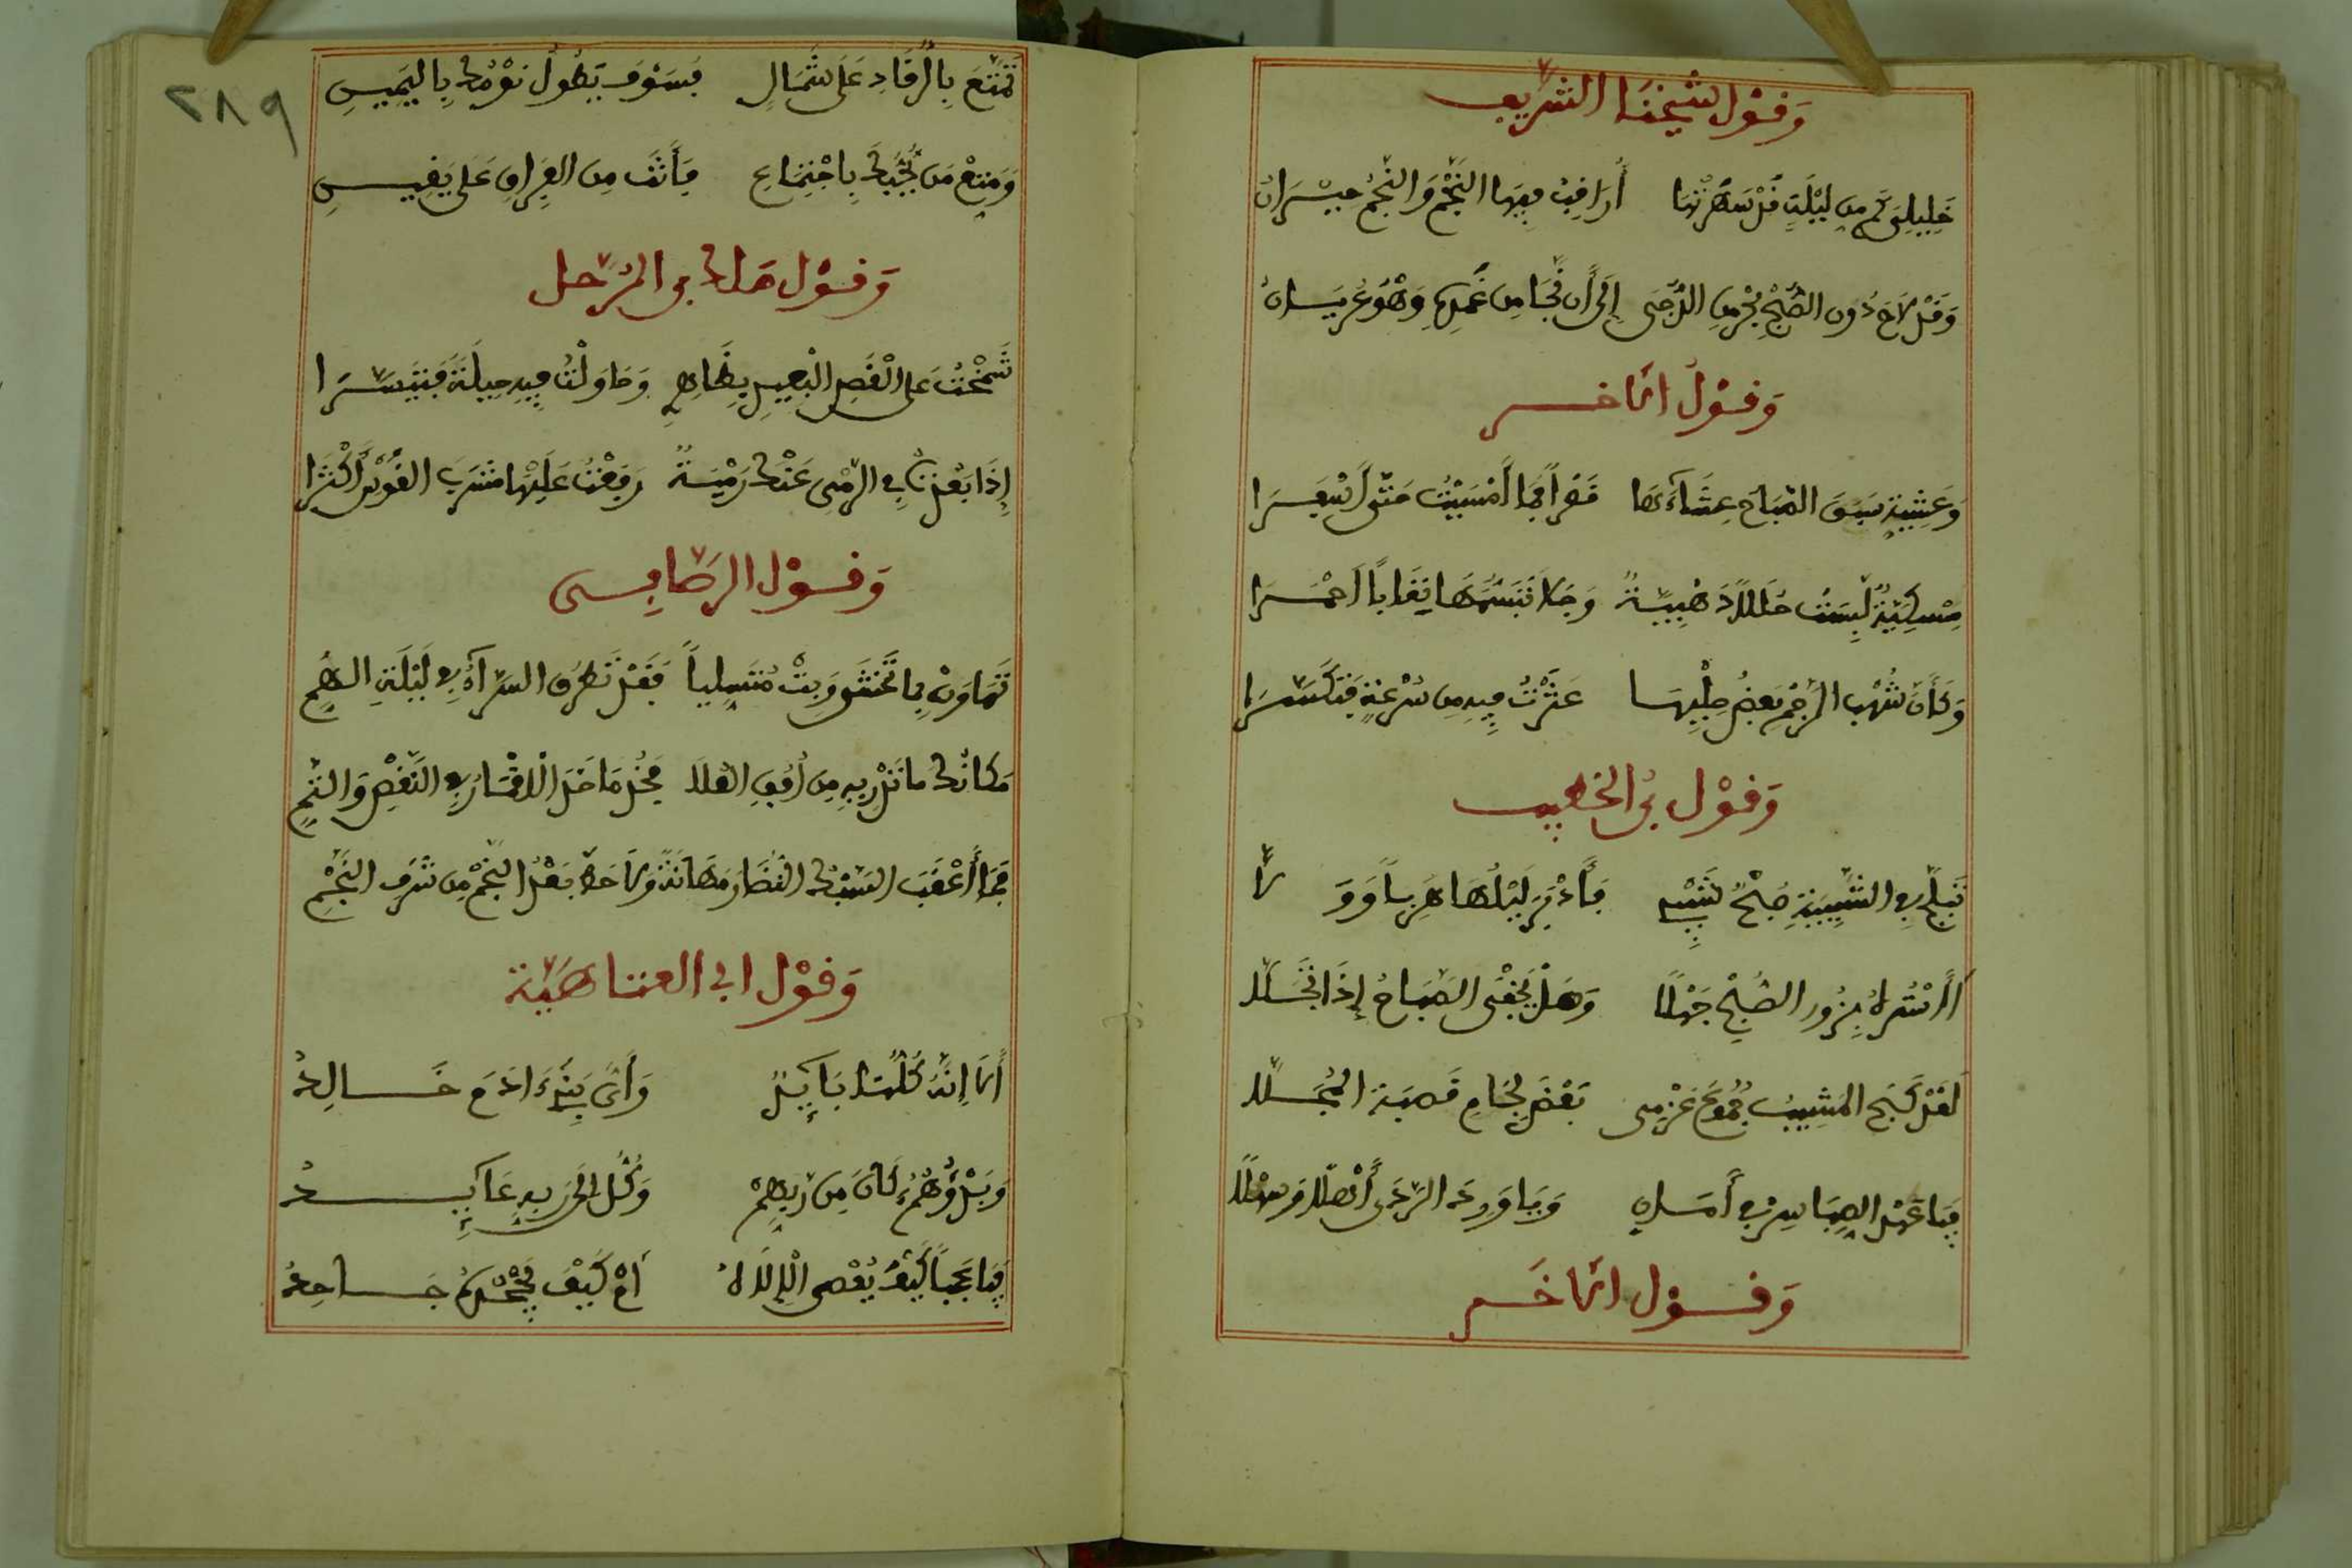 وَقَوْل شَيْخِنَا الشَّرِيفِ
خَلِيلِيَ كَم مِن لَيْلَةٍ قَدْ سَهِرْتُهَا أُرَاقِبُ فِيهَا النَّجْمَ وَالنَّجْمُ حَيْرَانُ
وَقَدْ لاَحَ دُون الصُّبْحِ مِن الدُّجَى إِلَى أَن نَجَا مِن غِمْدِهِ وَهْوَ عُرْيَانُ
وَقَوْلُ الآخَر
وَعَشِيَّةٍ سَبَقَ الصَّبَاحَ عِشَاءَهَا قِصَراً فَمَا أَمْسَيْتُ حَتَّى أَسْفَرَا
مِسْكِيَّةٌ لَبِسَتْ حُلىً ذَهَبِيَّةً وَجَلاَ تَبَسُّمُهَا نِقَاباً أَحْمَرَا
وَكَأَنَّ شُهْبَ الرَّجْمِ بَعْضُ حُلِيِّهَا عَثَرَتْ بِهِ مِن سُرْعَةٍ فَتَكَسَّرَا
وَقَوْل بْن الخَطِيبِ
تَبَلَّجَ فِي الشَّبِيبَةِ صُبْحُ شَيْبٍ فَأَدْبَرَ لَيْلُهَا هَرَباً وَوَلَّى
أَأَسْتُرُهُ بِزُورِ الصُّبْحِ جَهْلاً وَهَلْ يَخْفَى الصَّبَاحُ إِذَا تَجَلَّى
لَقَدْ كَبَحَ المَشِيبُ جُمُوحَ عَزْمِي بَعْضَ لِجَامِ قَصَبَة المُجَلَّى
فَيَا عَهْدَ الصِّبَا سِرْ فِي أَمَانٍ وَيَا وَرَعَ الرَّضَى أَهْلاً وَسَهْلاً
وَقَوْل الآخَر
تَمَتَّعَ بِالرُّقَادِ عَلَى شَمَالٍ فَسَوْفَ يَطُولُ نَوْمُكَ بِاليَمِينِ
وَمَتِّعْ مَن يُحِبُّكَ بِاجْتِمَاعٍ فَأَنْتَ مِن الفِرَاقِ عَلَى يَقِينِ
وَقَوْل مَالِك بن المُرَحَّل
شَمَخْتُ عَلَى الْغُصْنِ الْبَعِيدِ وَحَاوَلْتُ فِيهِ حِيلَةً فَتَيَسَّرَا
إِذَا بَعُدَتْ فِي الرَّمْيِ عَنْكَ رَمِيَّةٌ رَفَعْتَ عَلَيْهَا مَضْرِبَ القَوْسِ أَكْثَرَا
وَقَوْل الرَّصَافِي
تَهَاوَنْ بِمَا تَخْشَى وَبِتْ مُتَسَلِّياً فَقَدْ تَطْرُقُ السَّرَّآءُ فِي لَيْلَةِ الهَمِّ
مَكَانُكَ مَا تَدْرِيهِ مِن أُفُقِ العُلاَ فَخُذْ مَا خَذَ الأَقْمَارُ فِي النَّقْصِ وَالتَّمِّ
فَمَا أَعْقَبَ السَّبْكُ النُّضَارَ مَهَانَةً وَلاَ حَطَّ بَعْدُ النَّجْمِ مِن شَرَفِ النَّجْمِ
وَقَوْل أبِي العتَاهِيَّة
أَلاَ إِنَّنَا كُلَّنَا بَائِدٌ وَأَيُّ بَنِي ءَادَمَ خَالِدُ
وَبَدْؤُهُمُ كَانَ مِن رَبِّهِمْ وَكُلٌّ إِلَى رَبِّهِ عَائِدُ
فَيَا عَجَباً كَيْفَ يُعْصَى الْإِلَهُ أَمْ كَيْفَ يَجْحَدُهُ جَاحِدُ
٢٨٩